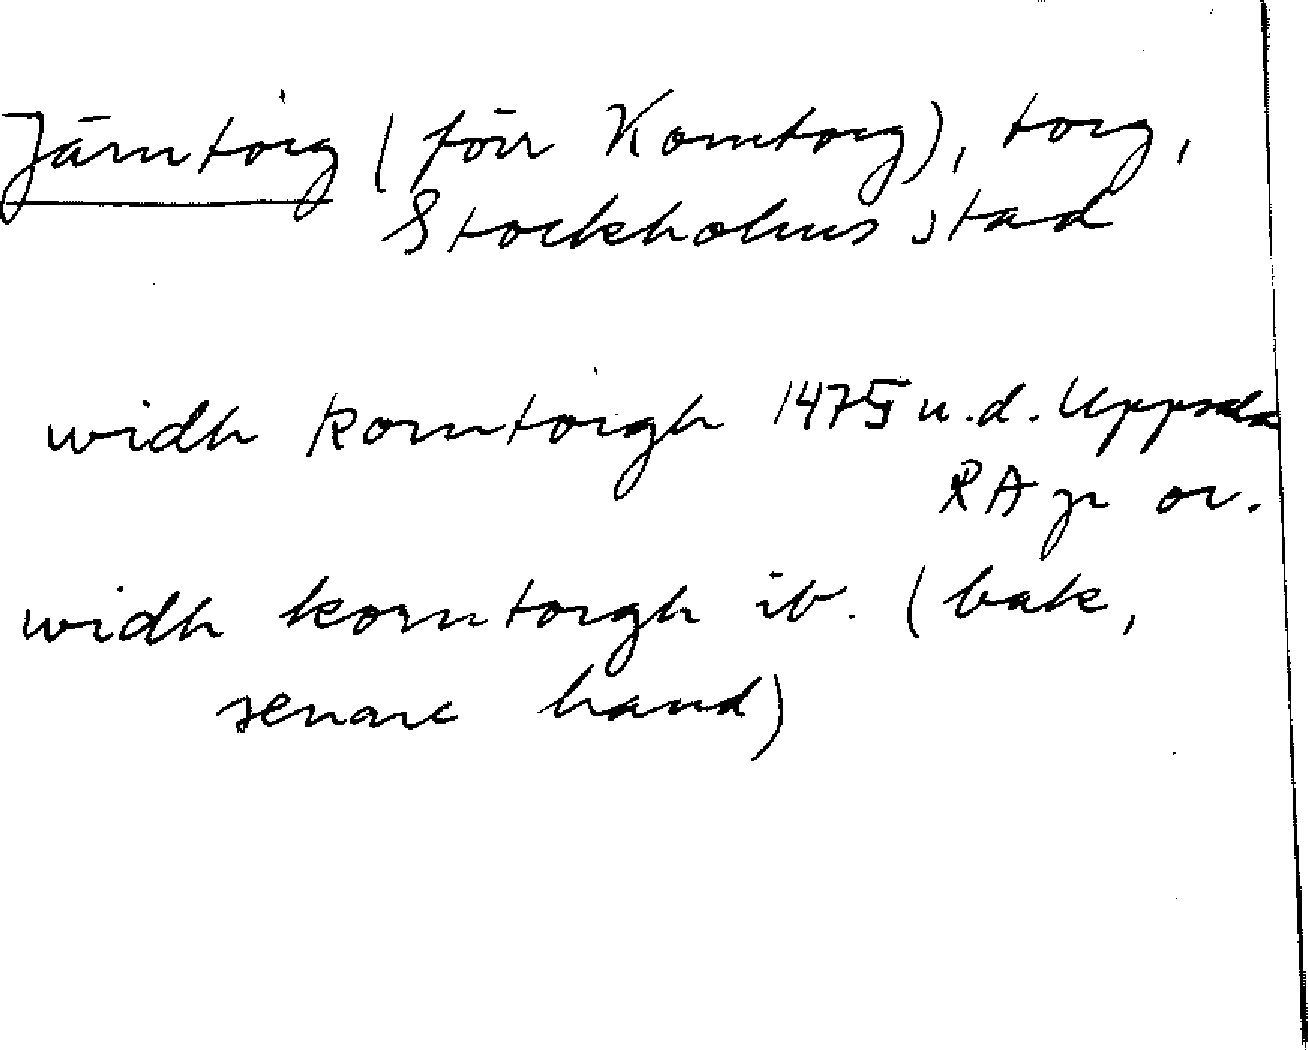 Järntorg (förr Korntorg), torg,
Stockholms stad
widh korntorgh 1475 u.d. Uppsala
RA p or.
widh korntorgh ib. (bak,
senare hand)